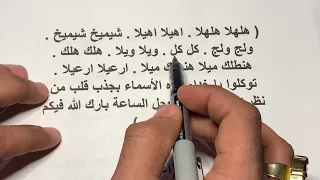 ( هلهلا هلهلا . اهيلا اهيلا . شيميخ شيميخ .
ولج ولج . كل كل . ويلا ويلا . هلك هلك .
هنطلك ميلا ميلا . ارعيلا ارعيلا .
توكلوا يا الأسماء بجذب قلب من
الساعة بارك الله فيكم
)